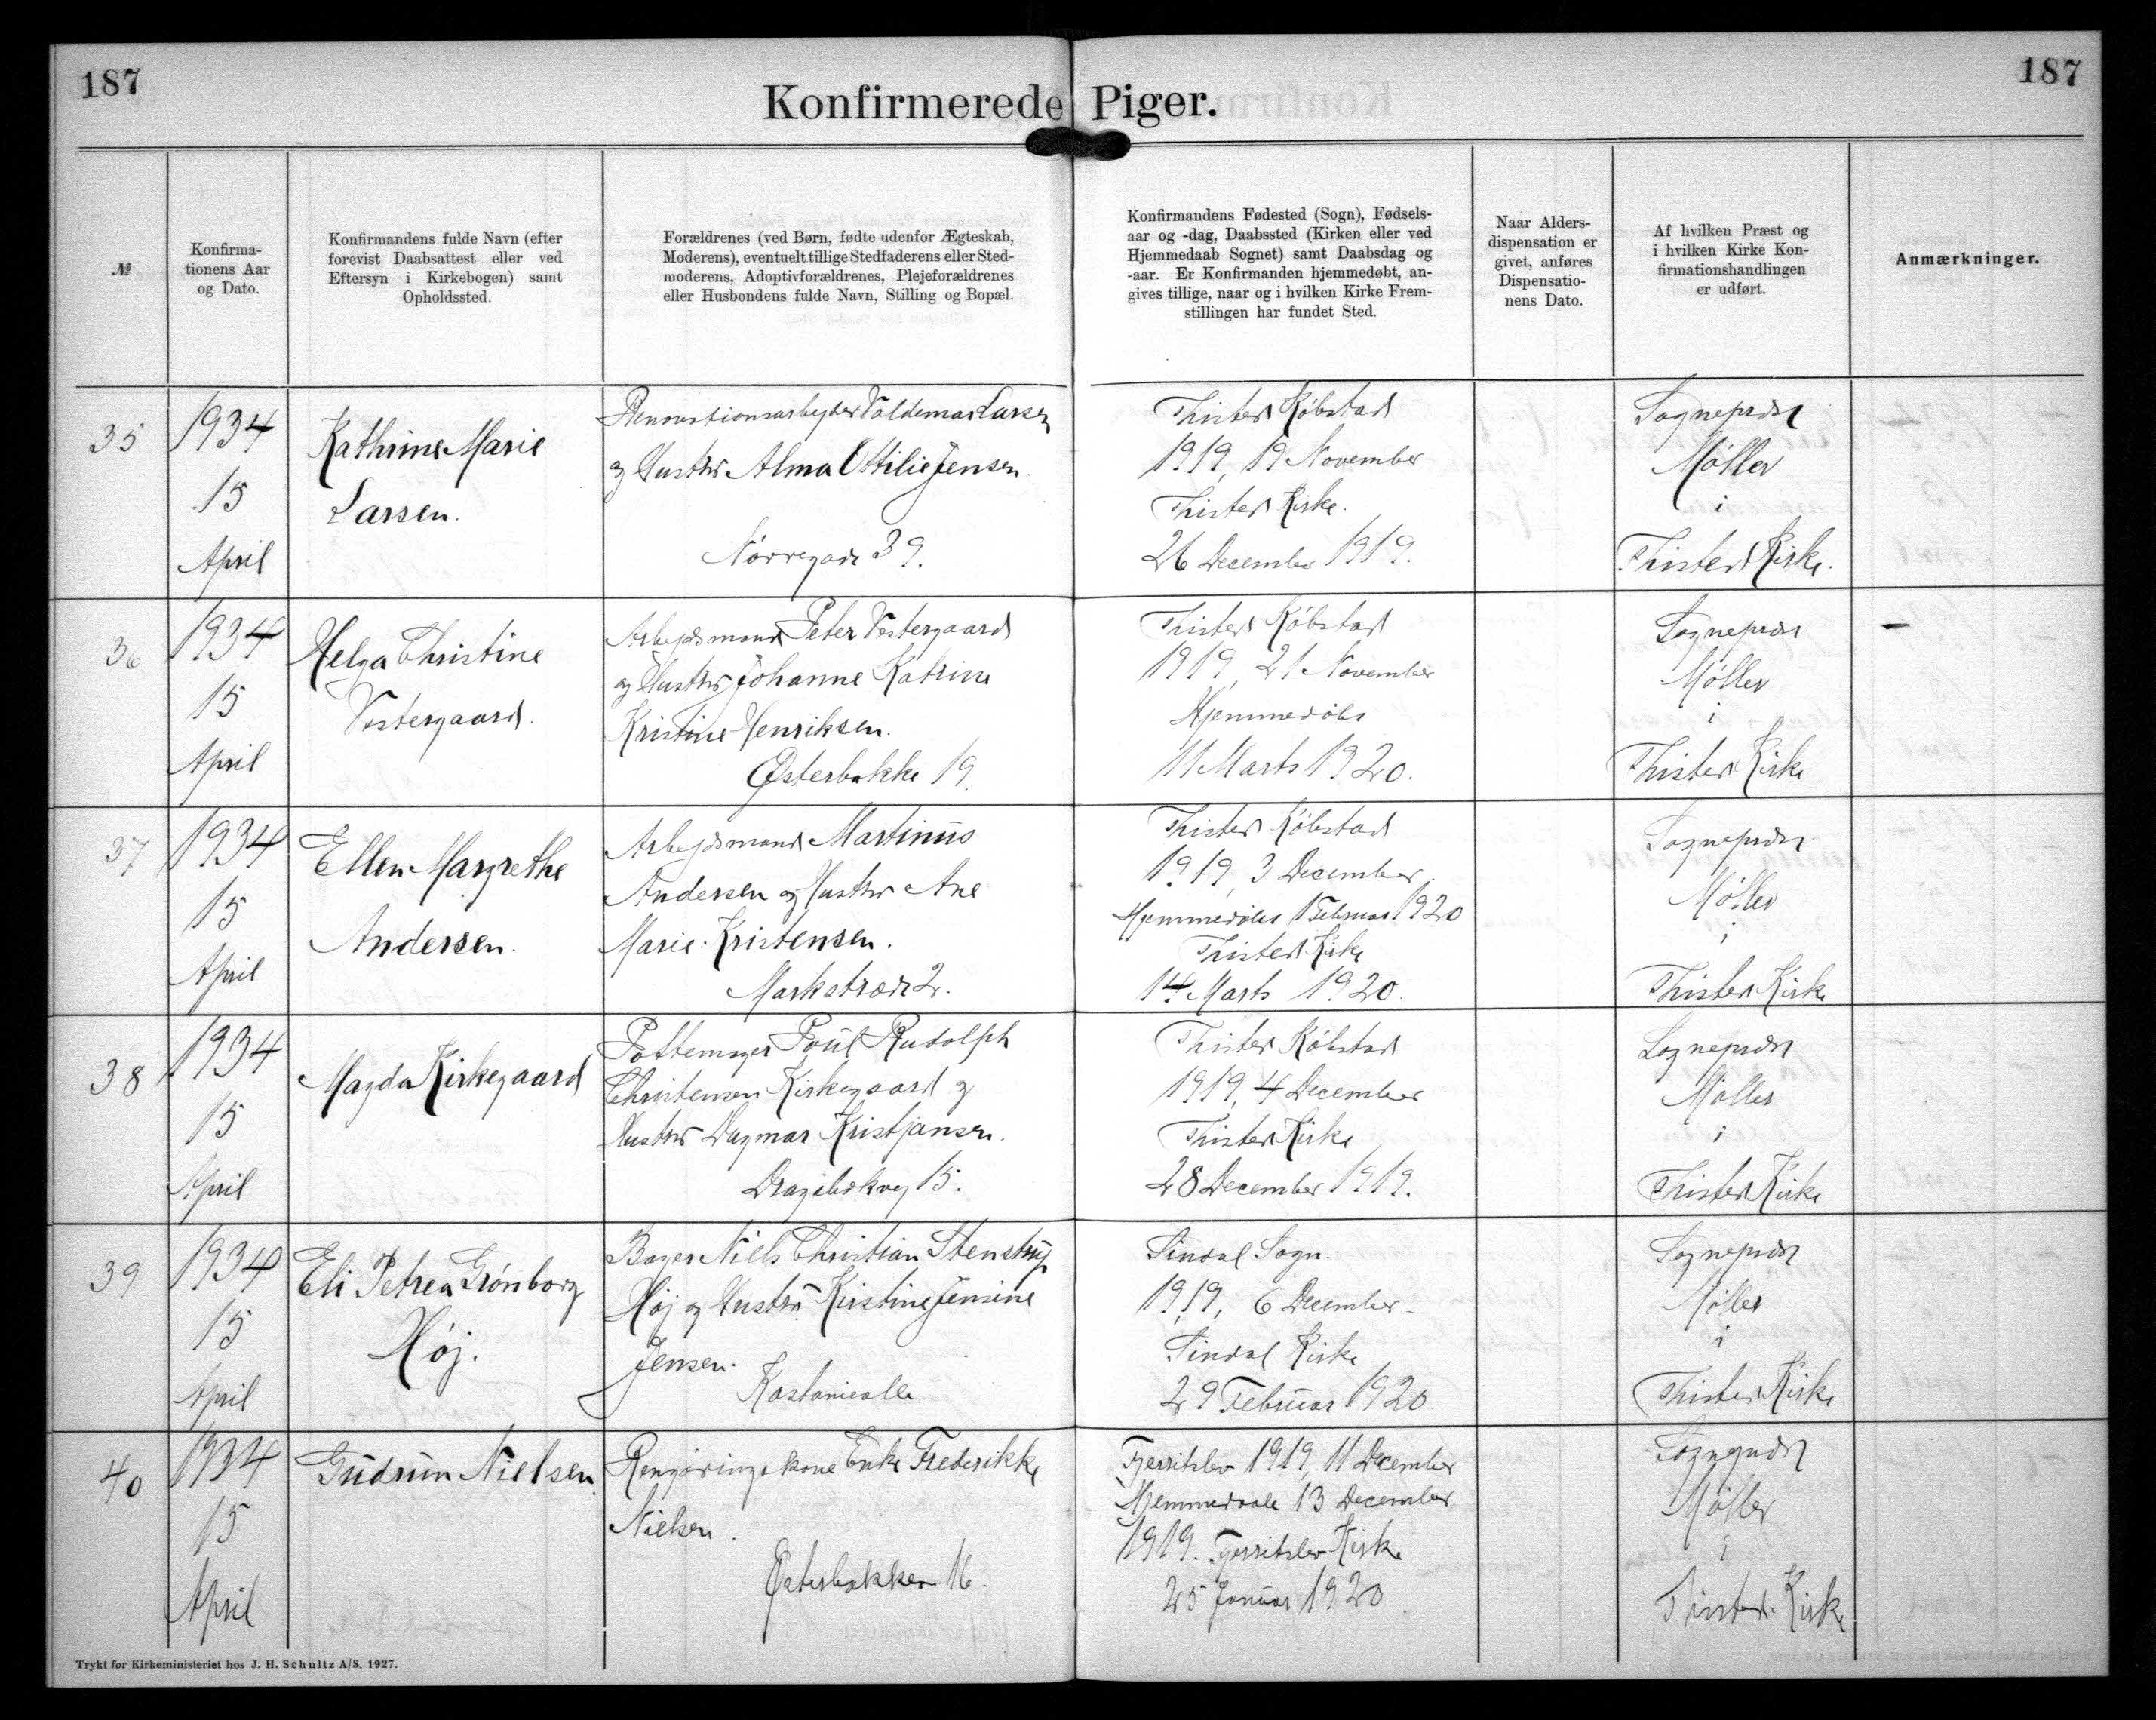 187
187
Konfirmerede Piger.
№
Konfirma-
tionens Aar
og Dato.
Konfirmandens fulde Navn (efter
forevist Daabsattest eller ved
Eftersyn i Kirkebogen) samt
Opholdssted.
Forældrenes (ved Børn, fødte udenfor Ægteskab,
Moderens), eventuelt tillige Stedfaderens eller Sted-
moderens, Adoptivforældrenes, Plejeforældrenes
eller Husbondens fulde Navn, Stilling og Bopæl.
Konfirmandens Fødested (Sogn), Fødsels-
aar og -dag, Daabssted (Kirken eller ved
Hjemmedaab Sognet) samt Daabsdag og
-aar. Er Konfirmanden hjemmedøbt, an-
gives tillige, naar og i hvilken Kirke Frem-
stillingen har fundet Sted.
Naar Alders-
dispensation er
givet, anføres
Dispensatio-
nens Dato.
Af hvilken Præst og
i hvilken Kirke Kon-
firmationshandlingen
er udført.
Anmærkninger.
35
1934
15
April
Kathrine Marie
Larsen.
Renovationsarbejder Valdemar Larsen
og Hustru Alma Ottilie Jensen.
Nørregade 39.
Thisted Købstad
1919, 19 November
Thisted Kirke.
26 December 1919.
Sognepræst
Møller
i
Thisted Kirke.
36
1934
15
April
Helga Christine
Vestergaard.
Arbejdsmand Peter Vestergaard
og Hustru Johanne Katrine
Kristine Henriksen.
Østerbakke 19.
Thisted Købstad
1919, 21 November
Hjemmedøbt
11 Marts 1920.
Sognepræst
Møller
i
Thisted Kirke
-
37
1934
15
April
Ellen Margrethe
Andersen.
Arbejdsmand Martinus
Andersen og Hustru Ane
Marie Kristensen.
Markstræde 2.
Thisted Købstad
1919, 3 December.
Hjemmedøbt 1 Februar 1920
Thisted Kirke
14 Marts 1920.
Sognepræst
Møller
i
Thisted Kirke
38
1934
15
April
Magda Kirkegaard
Pottemager Poul Rudolph
Christensen Kirkegaard og
Hustru Dagmar Kristjansen.
Dragsbækvej 15.
Thisted Købstad
1919, 4 December
Thisted Kirke
28 December 1919.
Sognepræst
Møller
i
Thisted Kirke
39
1934
15
April
Eli Petrea Grønborg
Høj.
Bager Niels Christian Stenstrup
Høj og Hustru Kirstine Jensine
Jensen.
Kastanieallé.
Sindal Sogn.
1919, 6 December
Sindal Kirke
29 Februar 1920.
Sognepræst
Møller
i
Thisted Kirke
40
1934
15
April
Gudrun Nielsen.
Rengøringskone Enke Frederikke
Nielsen.
Østerbakken 16.
Fjerritslev 1919, 11 December
Hjemmedaab 13 December
1919. Fjerritslev Kirke
25 Januar 1920
Sognepræst
Møller
i
Thisted Kirke
Trykt for Kirkeministeriet hos J. H. Schultz A/S. 1927.